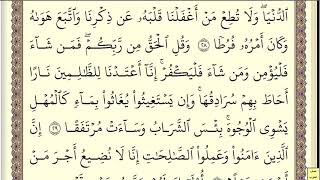 ٱلدُّنْيَا ۖ وَلَا تُطِعْ مَنْ أَغْفَلْنَا قَلْبَهُۥ عَن ذِكْرِنَا وَٱتَّبَعَ هَوَىٰهُ
وَكَانَ أَمْرُهُۥ فُرُطًا ٢٨ وَقُلِ ٱلْحَقُّ مِن رَّبِّكُمْ ۖ فَمَن شَآءَ
فَلْيُؤْمِن وَمَن شَآءَ فَلْيَكْفُرْ ۚ إِنَّآ أَعْتَدْنَا لِلظَّـٰلِمِينَ نَارًا
أَحَاطَ بِهِمْ سُرَادِقُهَا ۚ وَإِن يَسْتَغِيثُوا۟ يُغَاثُوا۟ بِمَآءٍ كَٱلْمُهْلِ
يَشْوِى ٱلْوُجُوهَ ۚ بِئْسَ ٱلشَّرَابُ وَسَآءَتْ مُرْتَفَقًا ٢٩ إِنَّ
ٱلَّذِينَ ءَامَنُوا۟ وَعَمِلُوا۟ ٱلصَّـٰلِحَـٰتِ إِنَّا لَا نُضِيعُ أَجْرَ مَنْ